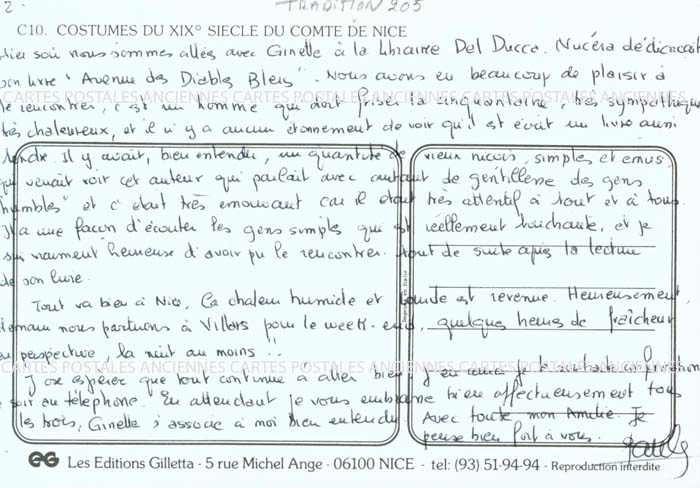 2.
TRADITION 205
C10. COSTUMES DU XIX° SIECLE DU COMTE DE NICE
Hier soir nous sommes allés avec Ginette à la librairie Del Ducca. Nucéra dédicaçait
son livre "Avenue des Diables Bleus". Nous avons eu beaucoup de plaisir à
le rencontrer, c'est un homme qui doit friser la cinquantaine, très sympathique
CARTES POSTALES ANCIENNES CARTES POSTALES ANCIENNES CARTES POSTALES ANCIENNES
très chaleureux, et il n'y a aucun étonnement de voir qu'il est écrit un livre aussi
tendre. Il y avait, bien entendu, un quantité de vieux niçois, simples et émus,
qui venait voir cet auteur qui parlait avec autant de gentillesse des gens
"humbles" et c'était très émouvant car il était très attentif à tout et à tous.
Il a une façon d'écouter les gens simples qui est réellement touchante, et je
suis vraiment heureuse d'avoir pu le rencontrer tout de suite après la lecture
de son livre.
Imprimé en Italie
Tout va bien à Nice. La chaleur humide et lourde est revenue. Heureusement,
demain nous partirons à Villars pour le week-end, quelques heures de fraîcheur
en perspective, la nuit au moins !..
CARTES POSTALES ANCIENNES CARTES POSTALES ANCIENNES CARTES POSTALES ANCIENNES
J'ose espérer que tout continue à aller bien
soir au téléphone. En attendant je vous embrasse bien affectueusement tous
les trois, Ginette s'associe à moi bien entendu. Avec toute mon Amitié. Je
pense bien fort à vous.
GG Les Editions Gilletta · 5 rue Michel Ange · 06100 NICE · tel: (93) 51-94-94 · Reproduction interdite